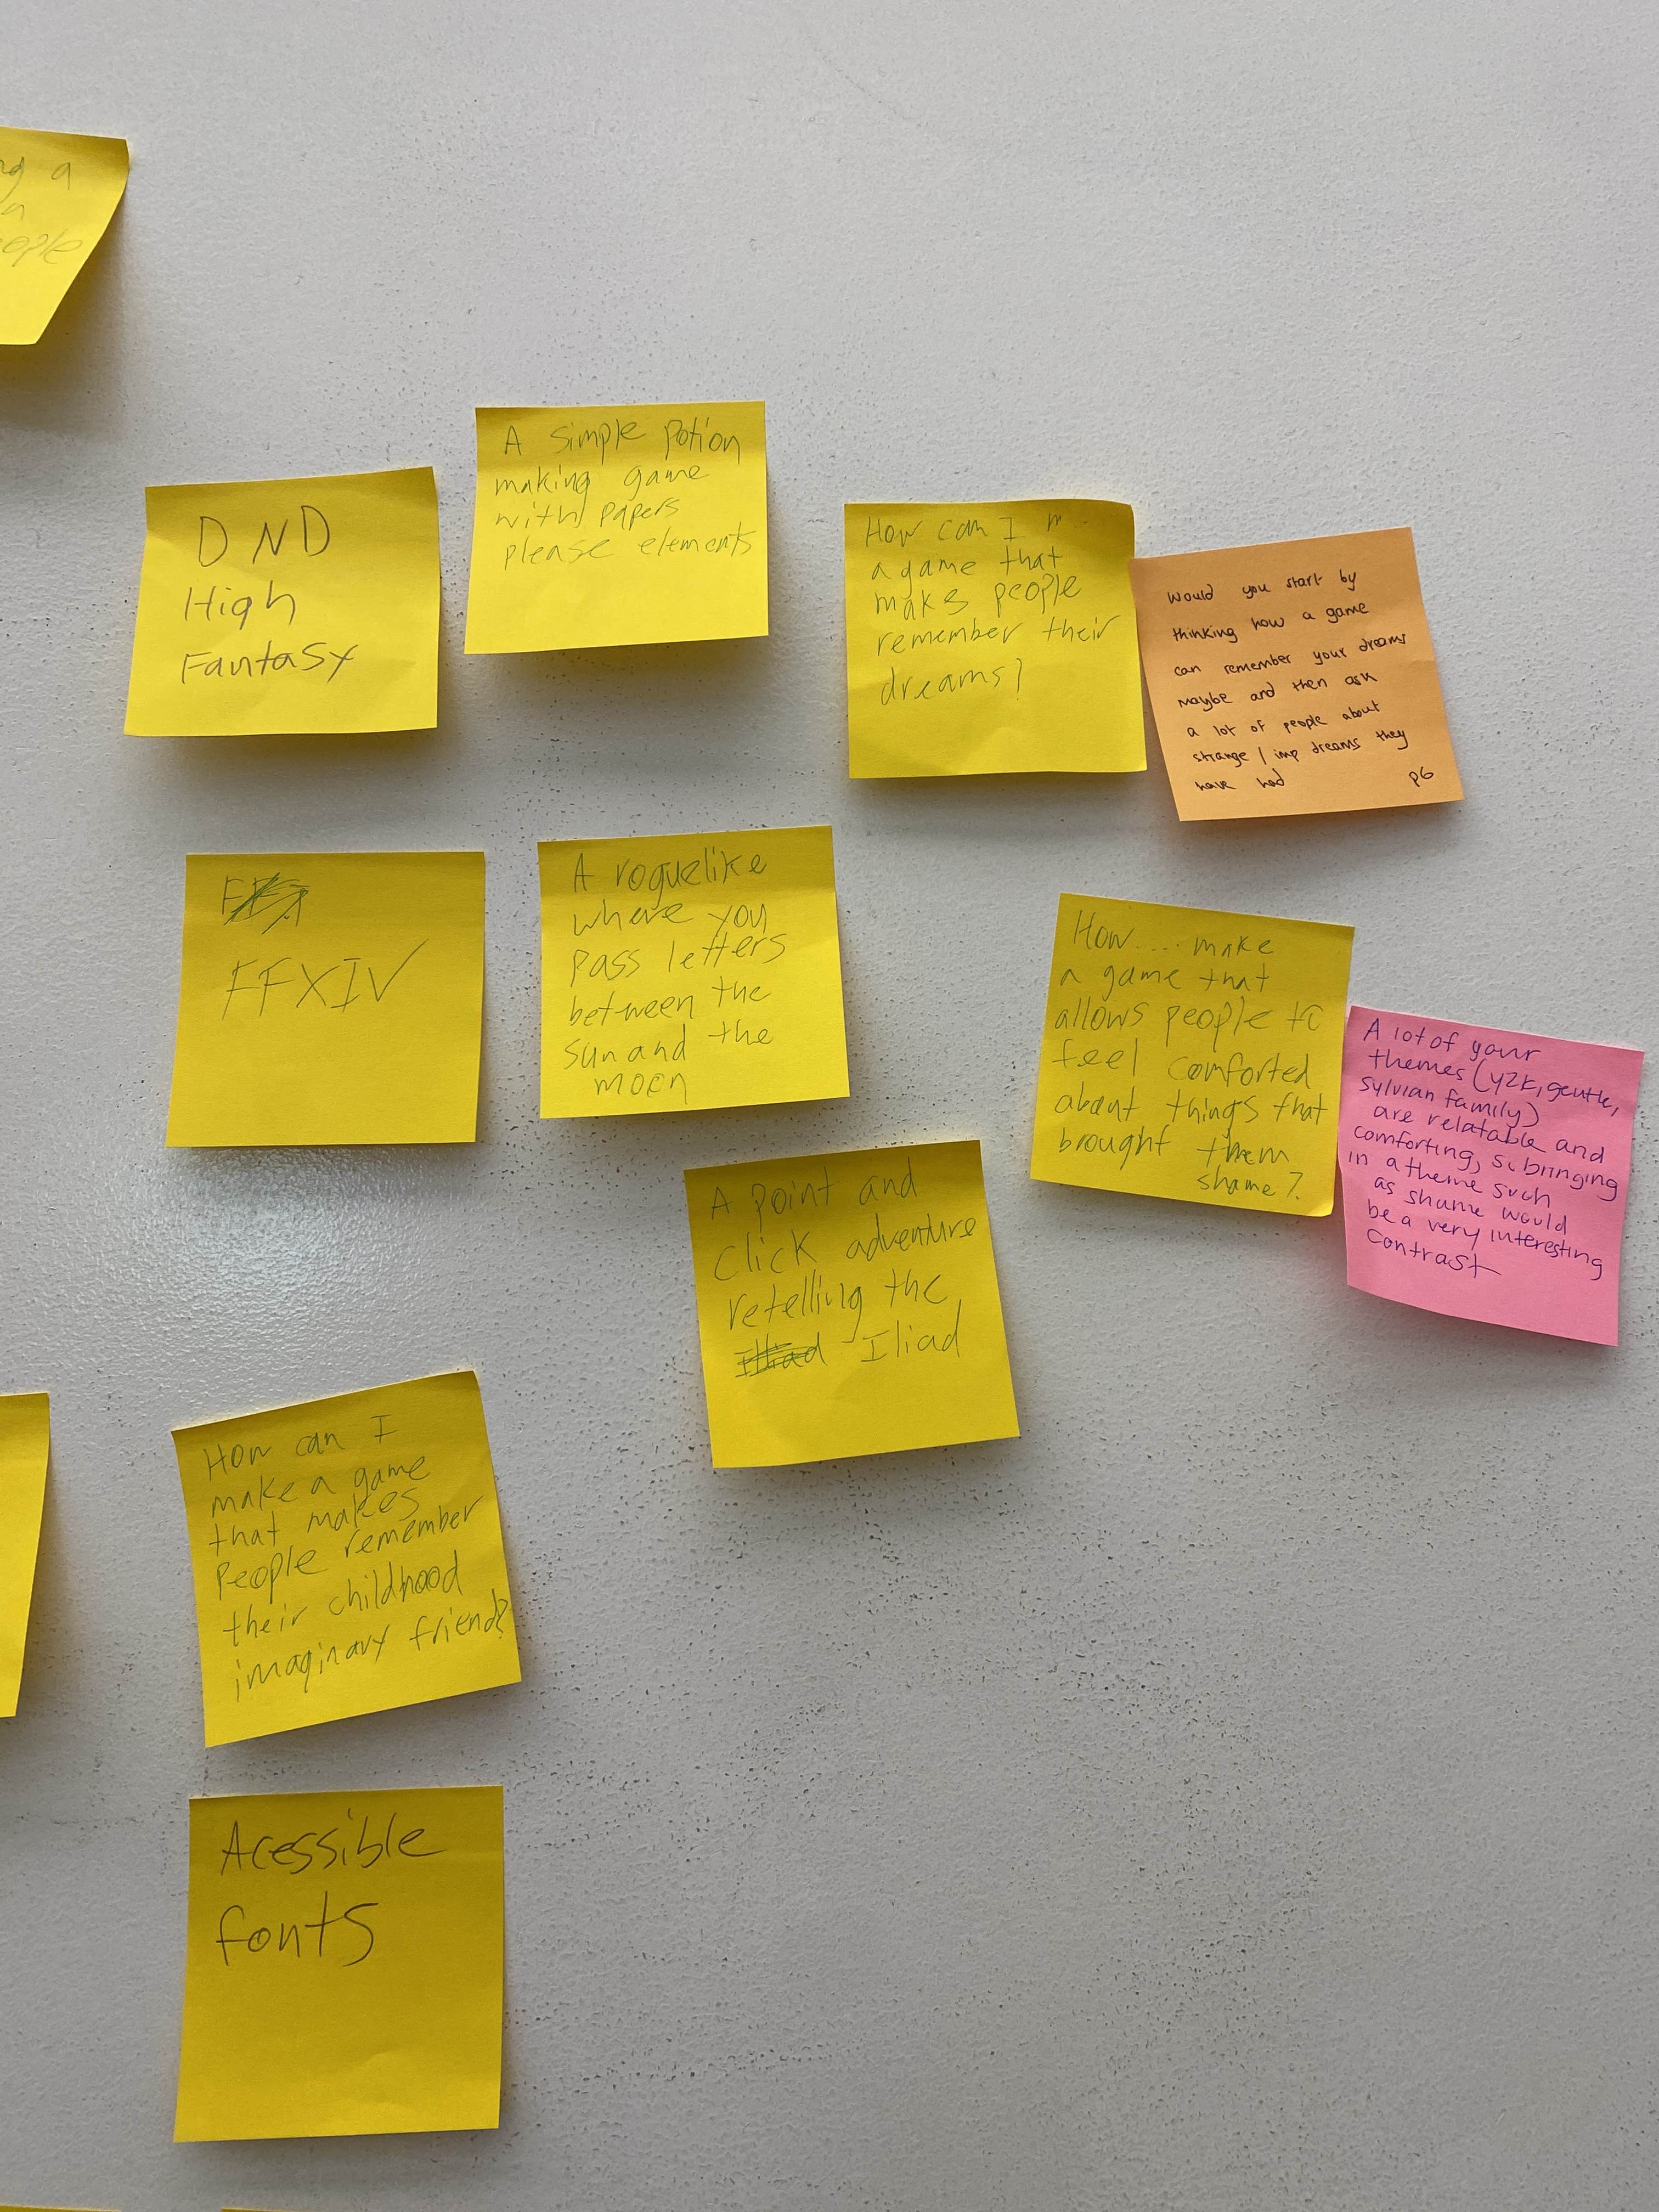 ng a
a
eople
DND
High
Fantasy
A simple potion
making game
with papers
please elements
How can I m...
a game that
makes people
remember their
dreams?
Would you start by
thinking how a game
can remember your dreams
maybe and then ask
a lot of people about
strange / imp dreams they
have had p6
FFXIV
A roguelike
where you
pass letters
between the
sun and the
moon
How.... make
a game that
allows people to
feel comforted
about things that
brought them
shame?
A lot of your
themes (y2k, gentle,
sylvian family)
are relatable and
comforting, so bringing
in a theme such
as shame would
be a very interesting
contrast
A point and
click adventure
retelling the
Iliad
How can I
make a game
that makes
people remember
their childhood
imaginary friend?
Acessible
fonts